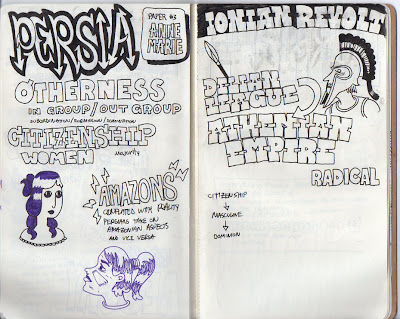 PERSIA
PAPER #3
ANNE
MARIE
OTHERNESS
IN GROUP/OUT GROUP
SUBORDINATION/SUBMISSION/DOMINATION
CITIZENSHIP
WOMEN
AMAZONS
CONFLATED WITH REALITY
PERSIANS TAKE ON
AMAZONIAN ASPECTS
AND VICE VERSA
IONIAN REVOLT
DELIAN
LEAGUE
ATHENIAN
EMPIRE
RADICAL
CITIZENSHIP
MASCULINE
DOMINION